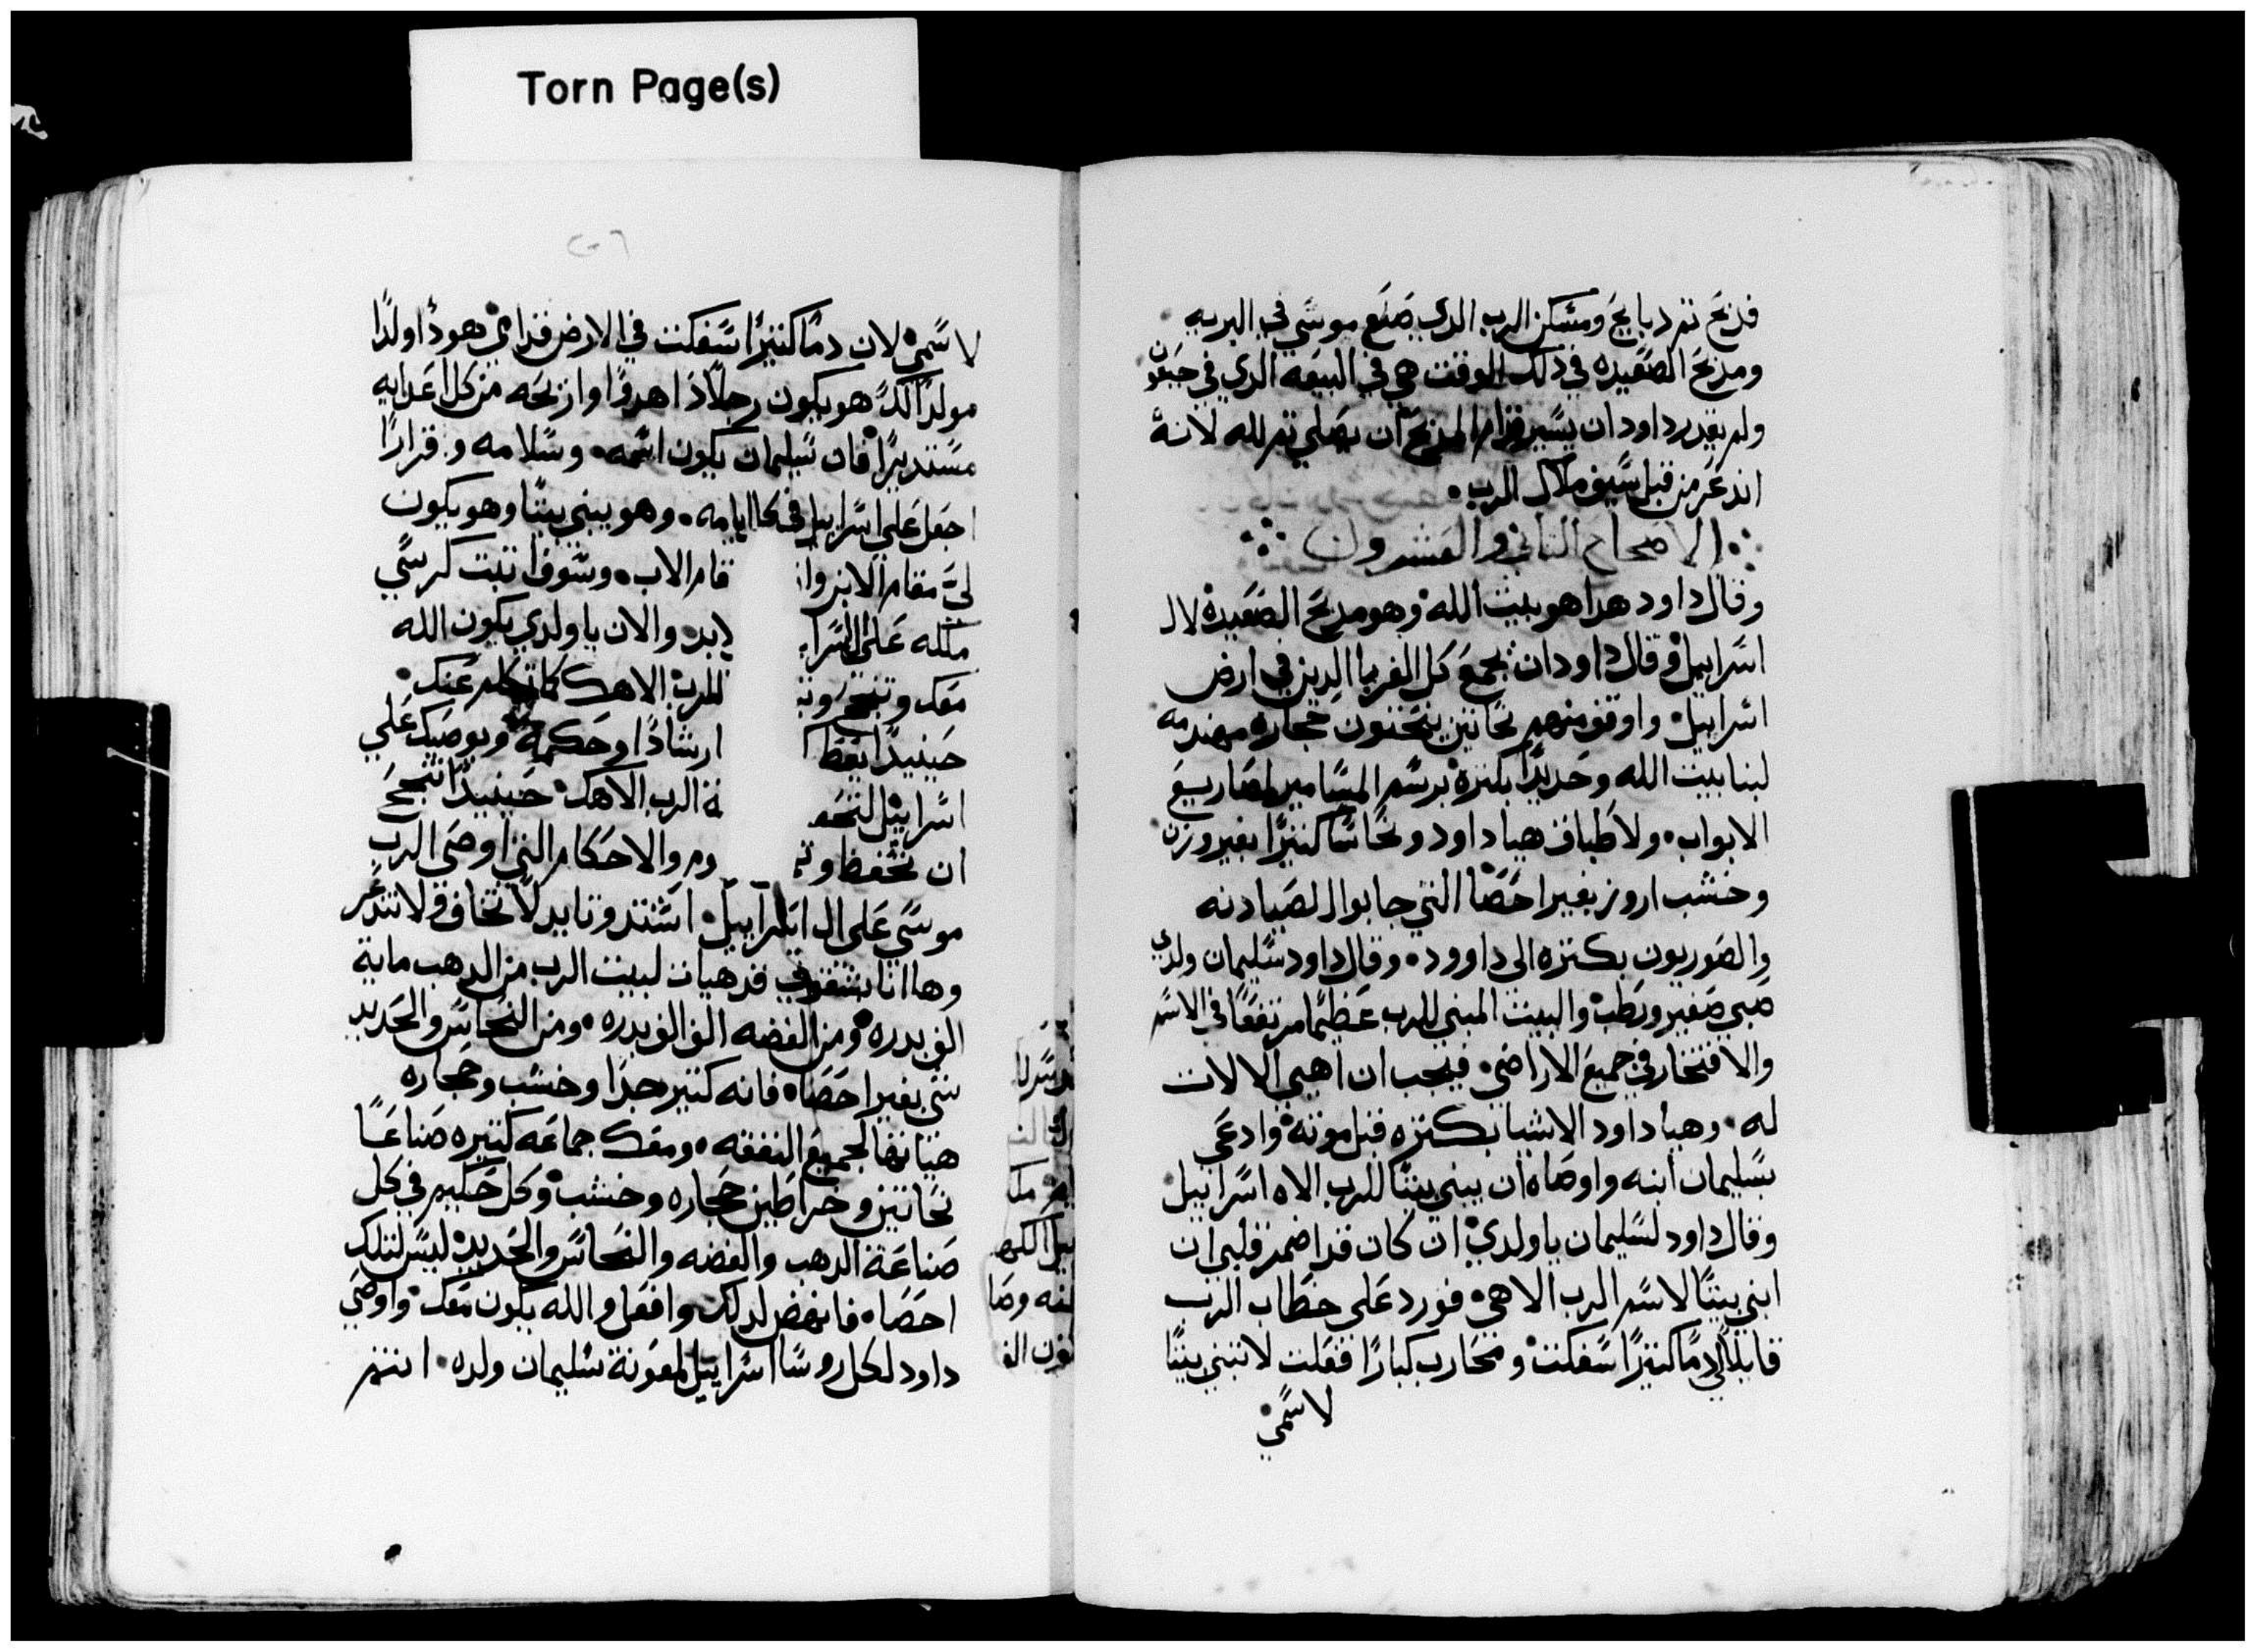 Torn Page(s)
فدبح تم دبايح ومسكن الرب الدي صنع موسي في البريه
ومدبح الصعيده في دلك الوقت هي في البيعه الدي في جبعون
ولم يقدر داود ان يسير قدام المدبح ان يصلي تم لله لانه
اندعر من قبل سيف ملاك الرب
الاصحاح التاني والعشرون
وقال داود هدا هو بيت الله وهو مدبح الصعيده لال
اسراييل وقال داود ان يجمع كل الغربا الدين في ارض
اسراييل واوقف منهم نحاتين ينحتون حجاره مهندمه
لبنا بيت الله وحديدا بكتره برسم المسامير لمصاريع
الابواب ولاطباق هيا داود ونحاسا كتيرا بغير وزن
وخشب اروز بغير احصا التي جابوا الصيادنه
والصوريون بكتره الي داوود وقال داود سليمان ولدي
صبي صغير ورطب والبيت المبني للرب عظيما مرتفعا في الاسم
والافتخار في جميع الاراضي فيجب ان اهيي الالات
له وهيا داود الاشيا بكتره قبل موته وادعي
بسليمان ابنه واوصاه ان يبني بيتا للرب الاه اسراييل
وقال داود لسليمان ياولدي ان كان قد اضمر قلبي ان
ابني بيتا لاسم الرب الاهي فورد علي خطاب الرب
قايلا لي دما كتيرا سفكت ومحارب كبارا فعلت لا تبني بيتا
لاسمي
٢٠٦
لاسمي لان دما كتيرا سفكت في الارض قدامي هودا ولدا
مولدا لك هو يكون رجلا دا هدوا وازيحه من كل اعدايه
مستديرا فان سليمان يكون اسمه وسلامه وقرارا
اجعل علي اسراييل في كل ايامه وهو يبني بيتا وهو يكون
لي مقام الابن وا قام الاب وسوف اتبت كرسي
ملكه علي اسرا لابد والان ياولدي يكون الله
معك وتنجح وتبـ للرب الاهك كما تكلم عنك
حينيدا يعطـ ارشادا وحكمه ويوصيك علي
اسراييل لتحفـ ة الرب الاهك حينيدا تنجح
ان تحفظ وتـ وم والاحكام التي اوصي الرب
موسي علي ال اسراييل اشتد وتايد لا تخاف ولا تندعر
وها انا بشقوتي قد هيات لبيت الرب من الدهب ماية
الف بدره ومن الفضه الف الف بدره ومن النحاس والحديد
شي بغير احصاه فانه كتير جدا وخشب وحجاره
هياتها لجميع النفقه ومعك جماعه كتيره صناعا
نحاتين وخراطين حجاره وخشب وكل حكيم في كل
صناعة الدهب والفضه والنحاس والحديد ليس لتلك
احصاه فانهض لدلك وافعل والله يكون معك واوصي
داود لكل روسا اسراييل لمعونة سليمان ولده انتم